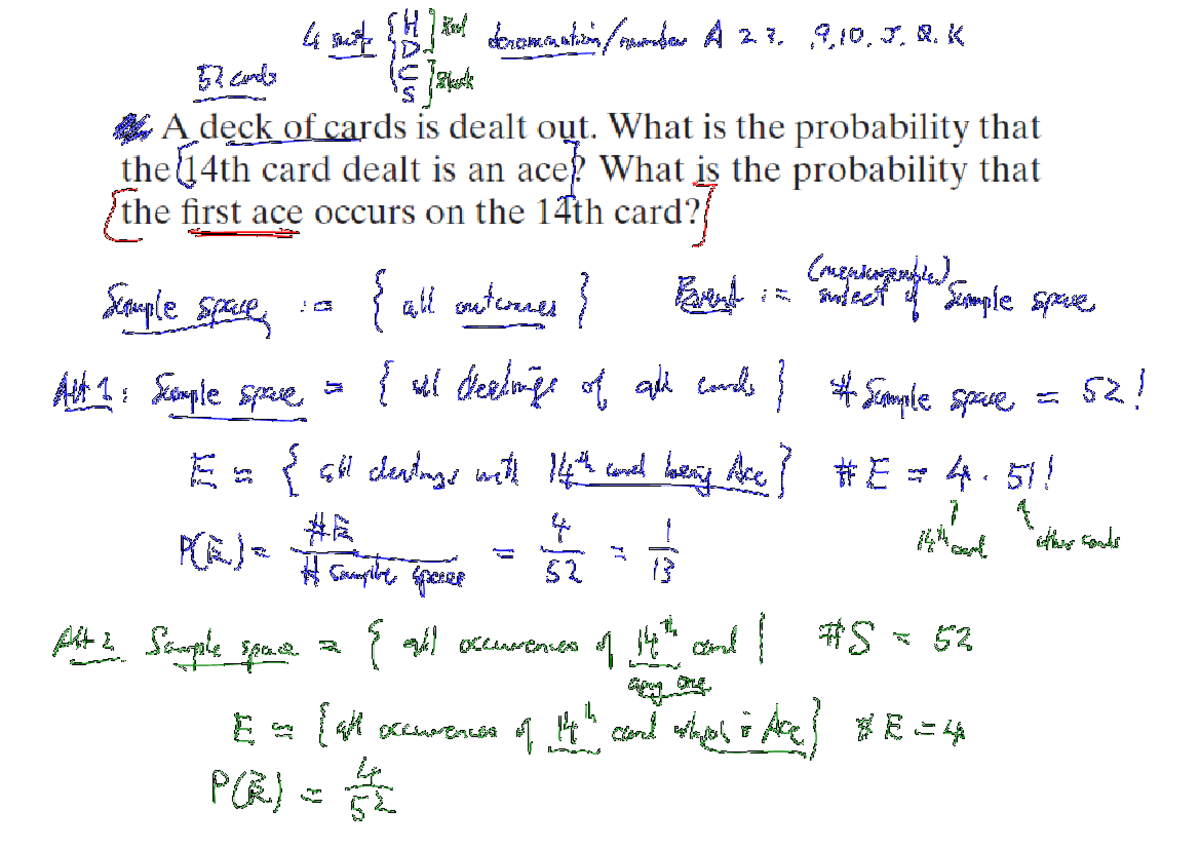 4 suits { H D C S ] Red ] Black denomination/number A 2 3. , 9, 10, J, Q, K
52 cards
A deck of cards is dealt out. What is the probability that
the 14th card dealt is an ace? What is the probability that
the first ace occurs on the 14th card?
Sample space := { all outcomes } Event := (measurable) subset of Sample space
Alt 1: Sample space = { all dealings of all cards } # Sample space = 52!
E = { all dealings with 14th card being Ace } # E = 4 · 51!
14th card other cards
P(E) = #E / # Sample space = 4/52 = 1/13
Alt 2 Sample space = { all occurences of 14th card } #S = 52
any one
E = { all occurences of 14th card which is Ace } # E = 4
P(E) = 4/52